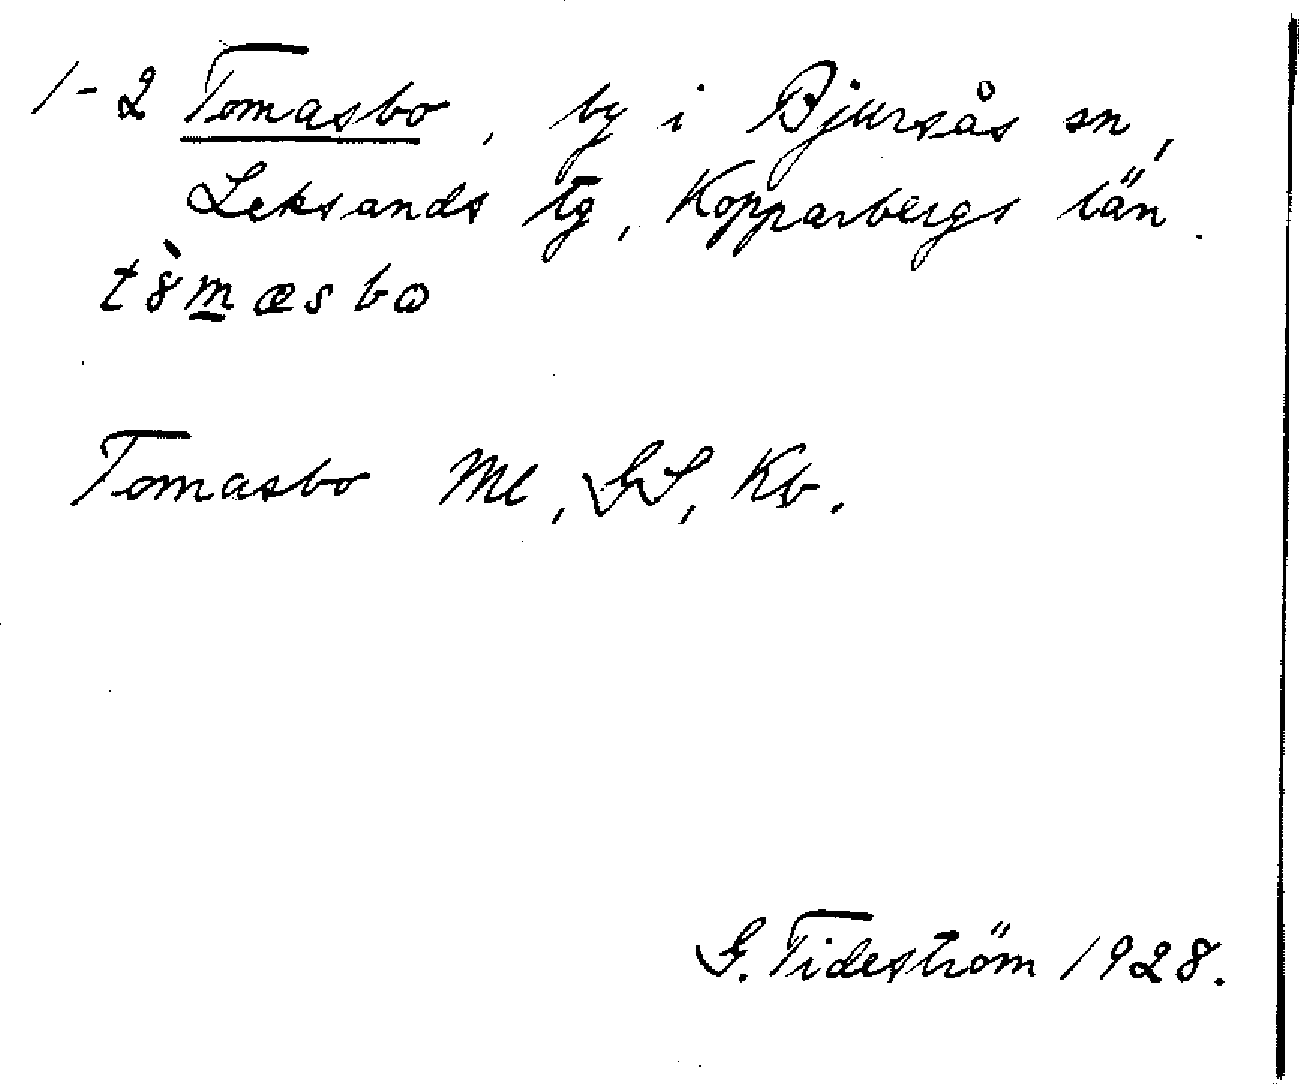 1-2 Tomasbo, by i Bjursås sn,
Leksands tg, Kopparbergs län.
t8̀m̲æsbɷ
Tomasbo Ml, GS, Kb.
G. Tideström 1928.